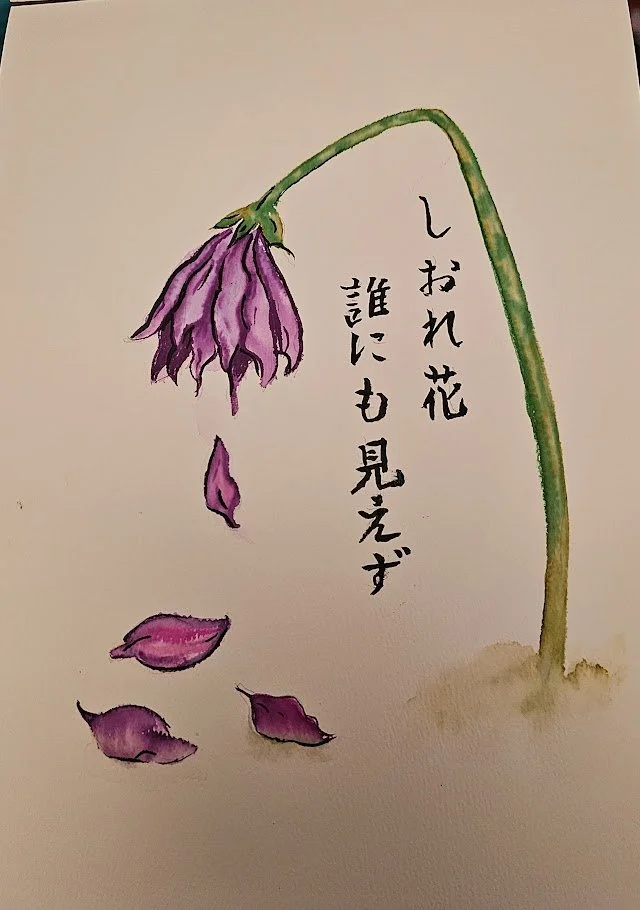 しおれ花
誰にも見えず